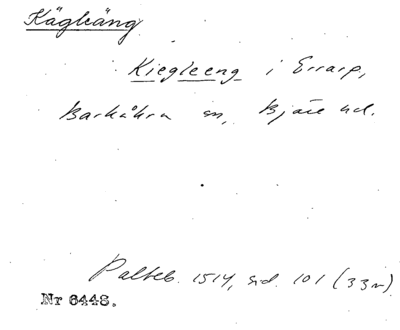 Kägleäng
Kiegleeng i Errarp,
Barkåkra sn, Bjäre hd.
Palteb. 1514, sid. 101 (33r)
Nr 6448.